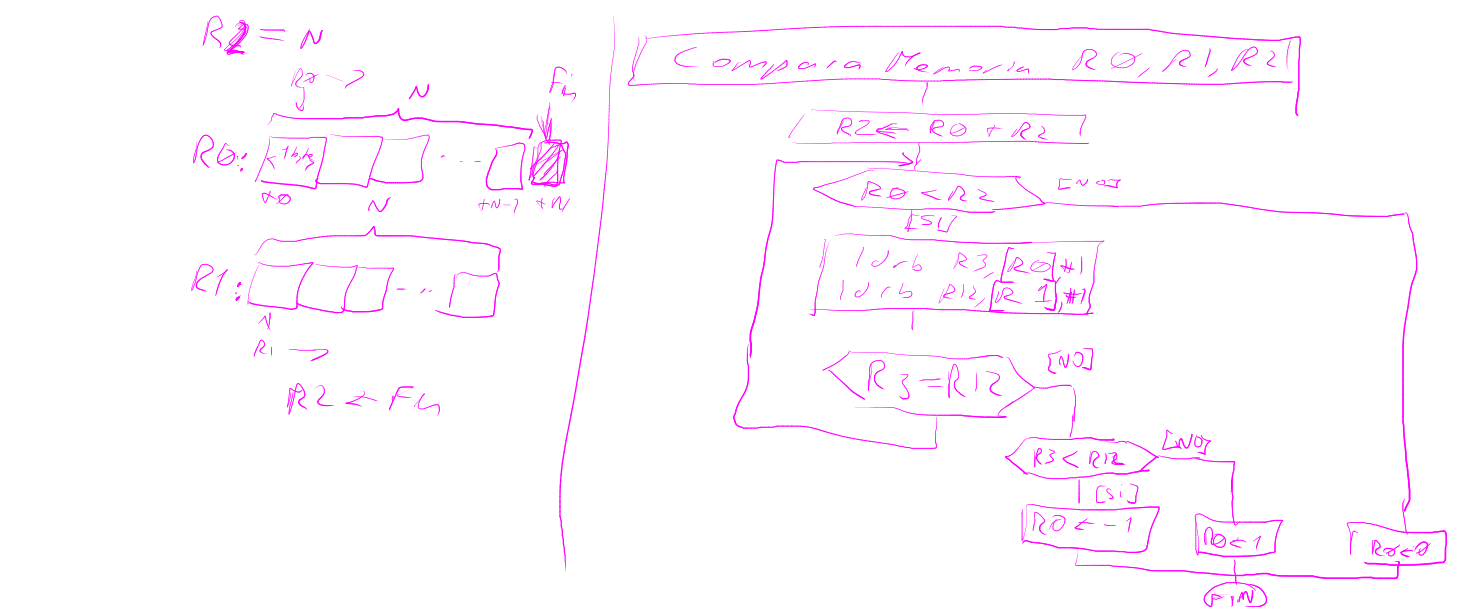 R2 = N
R0 →
N
Fin
R0: <1byte ...
+0 +N-1 +N
N
R1: ...
R1 →
R2 ← Fin
Compara Memoria R0, R1, R2
R2 ← R0 + R2
R0 < R2
[NO]
[SI]
ldrb R3, [R0], #1
ldrb R12, [R1], #1
R3 = R12
[NO]
R3 < R12
[NO]
[Si]
R0 ← -1
R0 ← 1
R0 ← 0
FIN